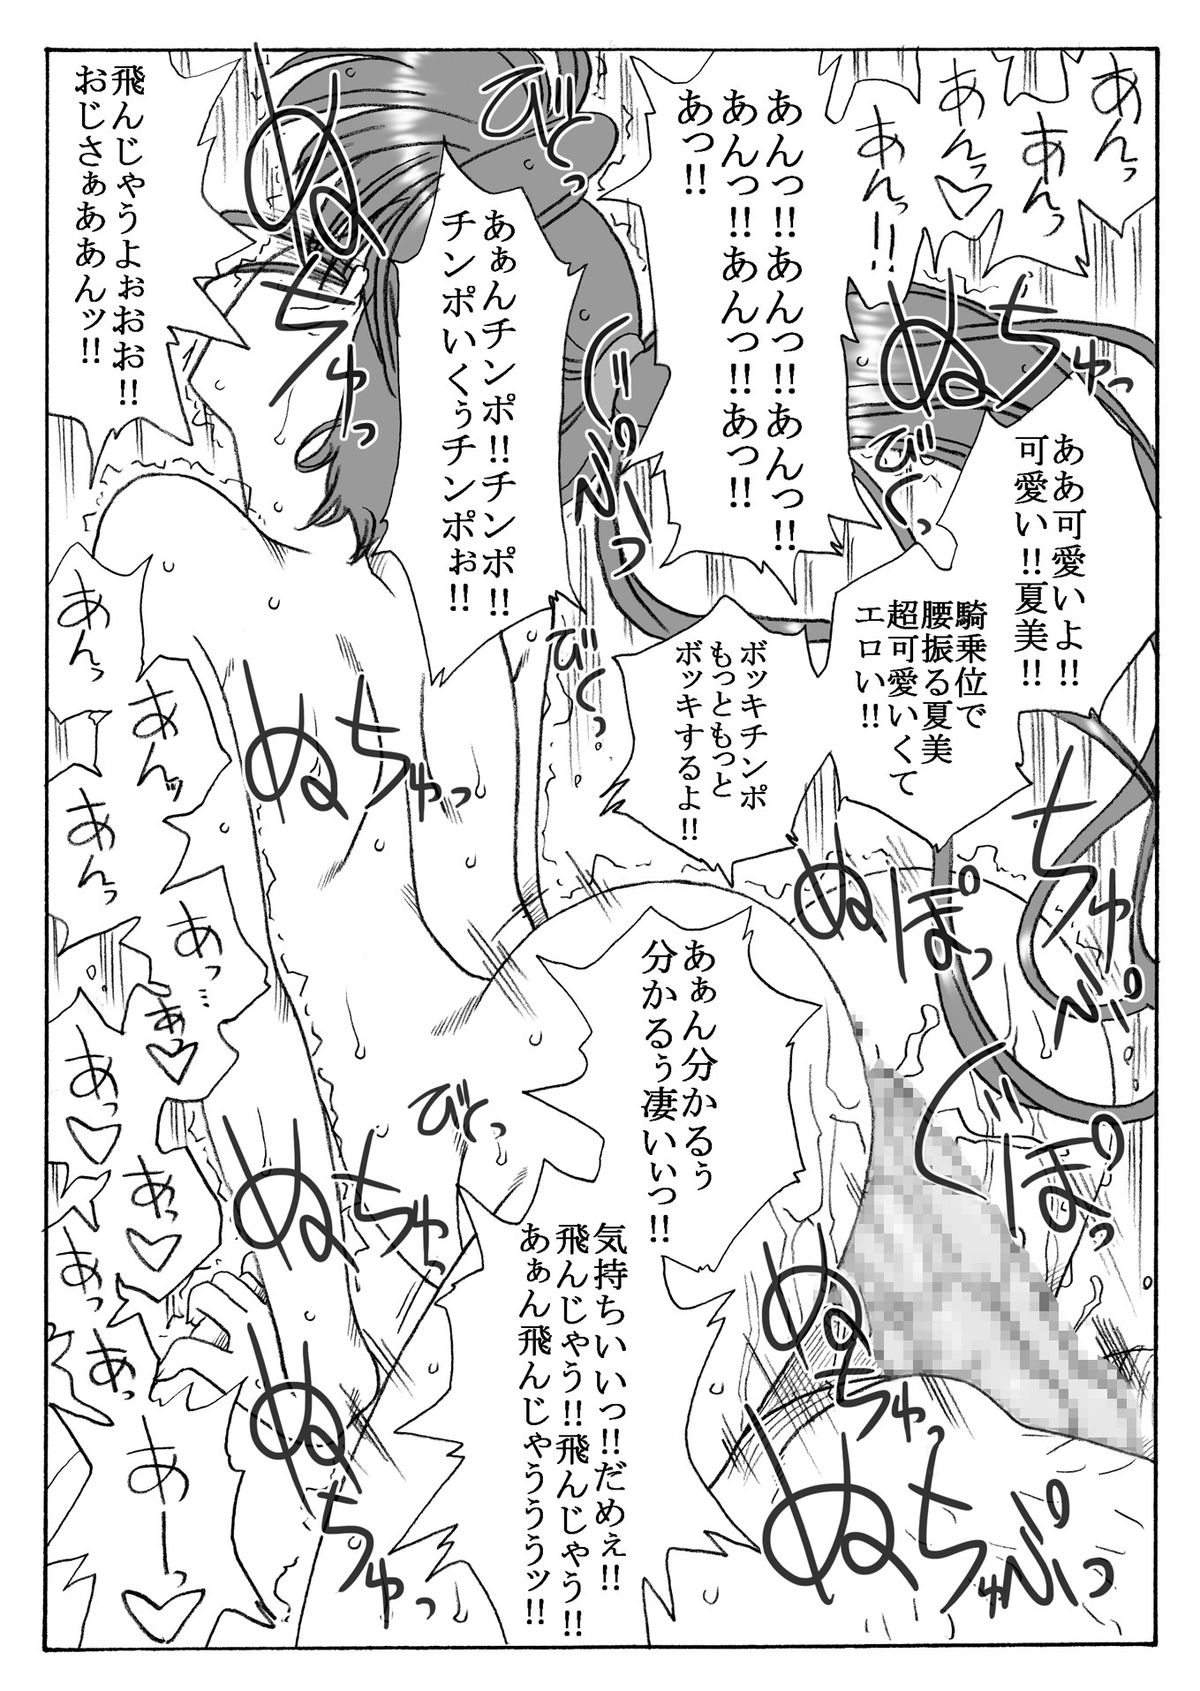 あんっ
あんっ
あんっ♡
あんっ!!
あんっ!!あんっ!!あんっ!!
あんっ!!あんっ!!あっ!!
あっ!!
あぁんチンポ!!チンポ!!
チンポいくぅチンポぉ!!
飛んじゃうよぉおお!!
おじさぁああんッ!!
ああ可愛いよ!!
可愛い!!夏美!!
騎乗位で
腰振る夏美
超可愛いくて
エロい!!
ボッキチンポ
もっともっと
ボッキするよ!!
あぁん分かるぅ
分かるぅ凄いぃっ!!
気持ちいいっ!!だめぇ!!
飛んじゃう!!飛んじゃう!!
あぁん飛んじゃうううッ!!
あんっ
あんッ
あんっ
あっ…
あぁ♡
あっ♡
あっ♡
あっ
あっ
あーっ♡
びくっ
びくっ
びくっ
びくっ
ぬちゅっ
ぬちゅっ
ぬちゅっ
ぬちゅっ
ぬちゅっ
ぬちゅっ
ぬぽっ
ぬちゅぷっ